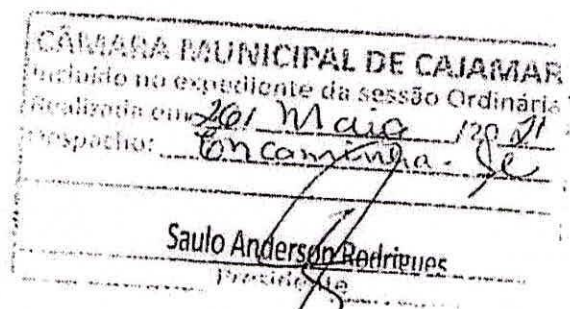 CÂMARA MUNICIPAL DE CAJAMAR
Incluído no expediente da sessão Ordinária
Realizada em 26/ Maio /20 21
Despacho: Encaminha-se
Saulo Anderson Rodrigues
Presidente